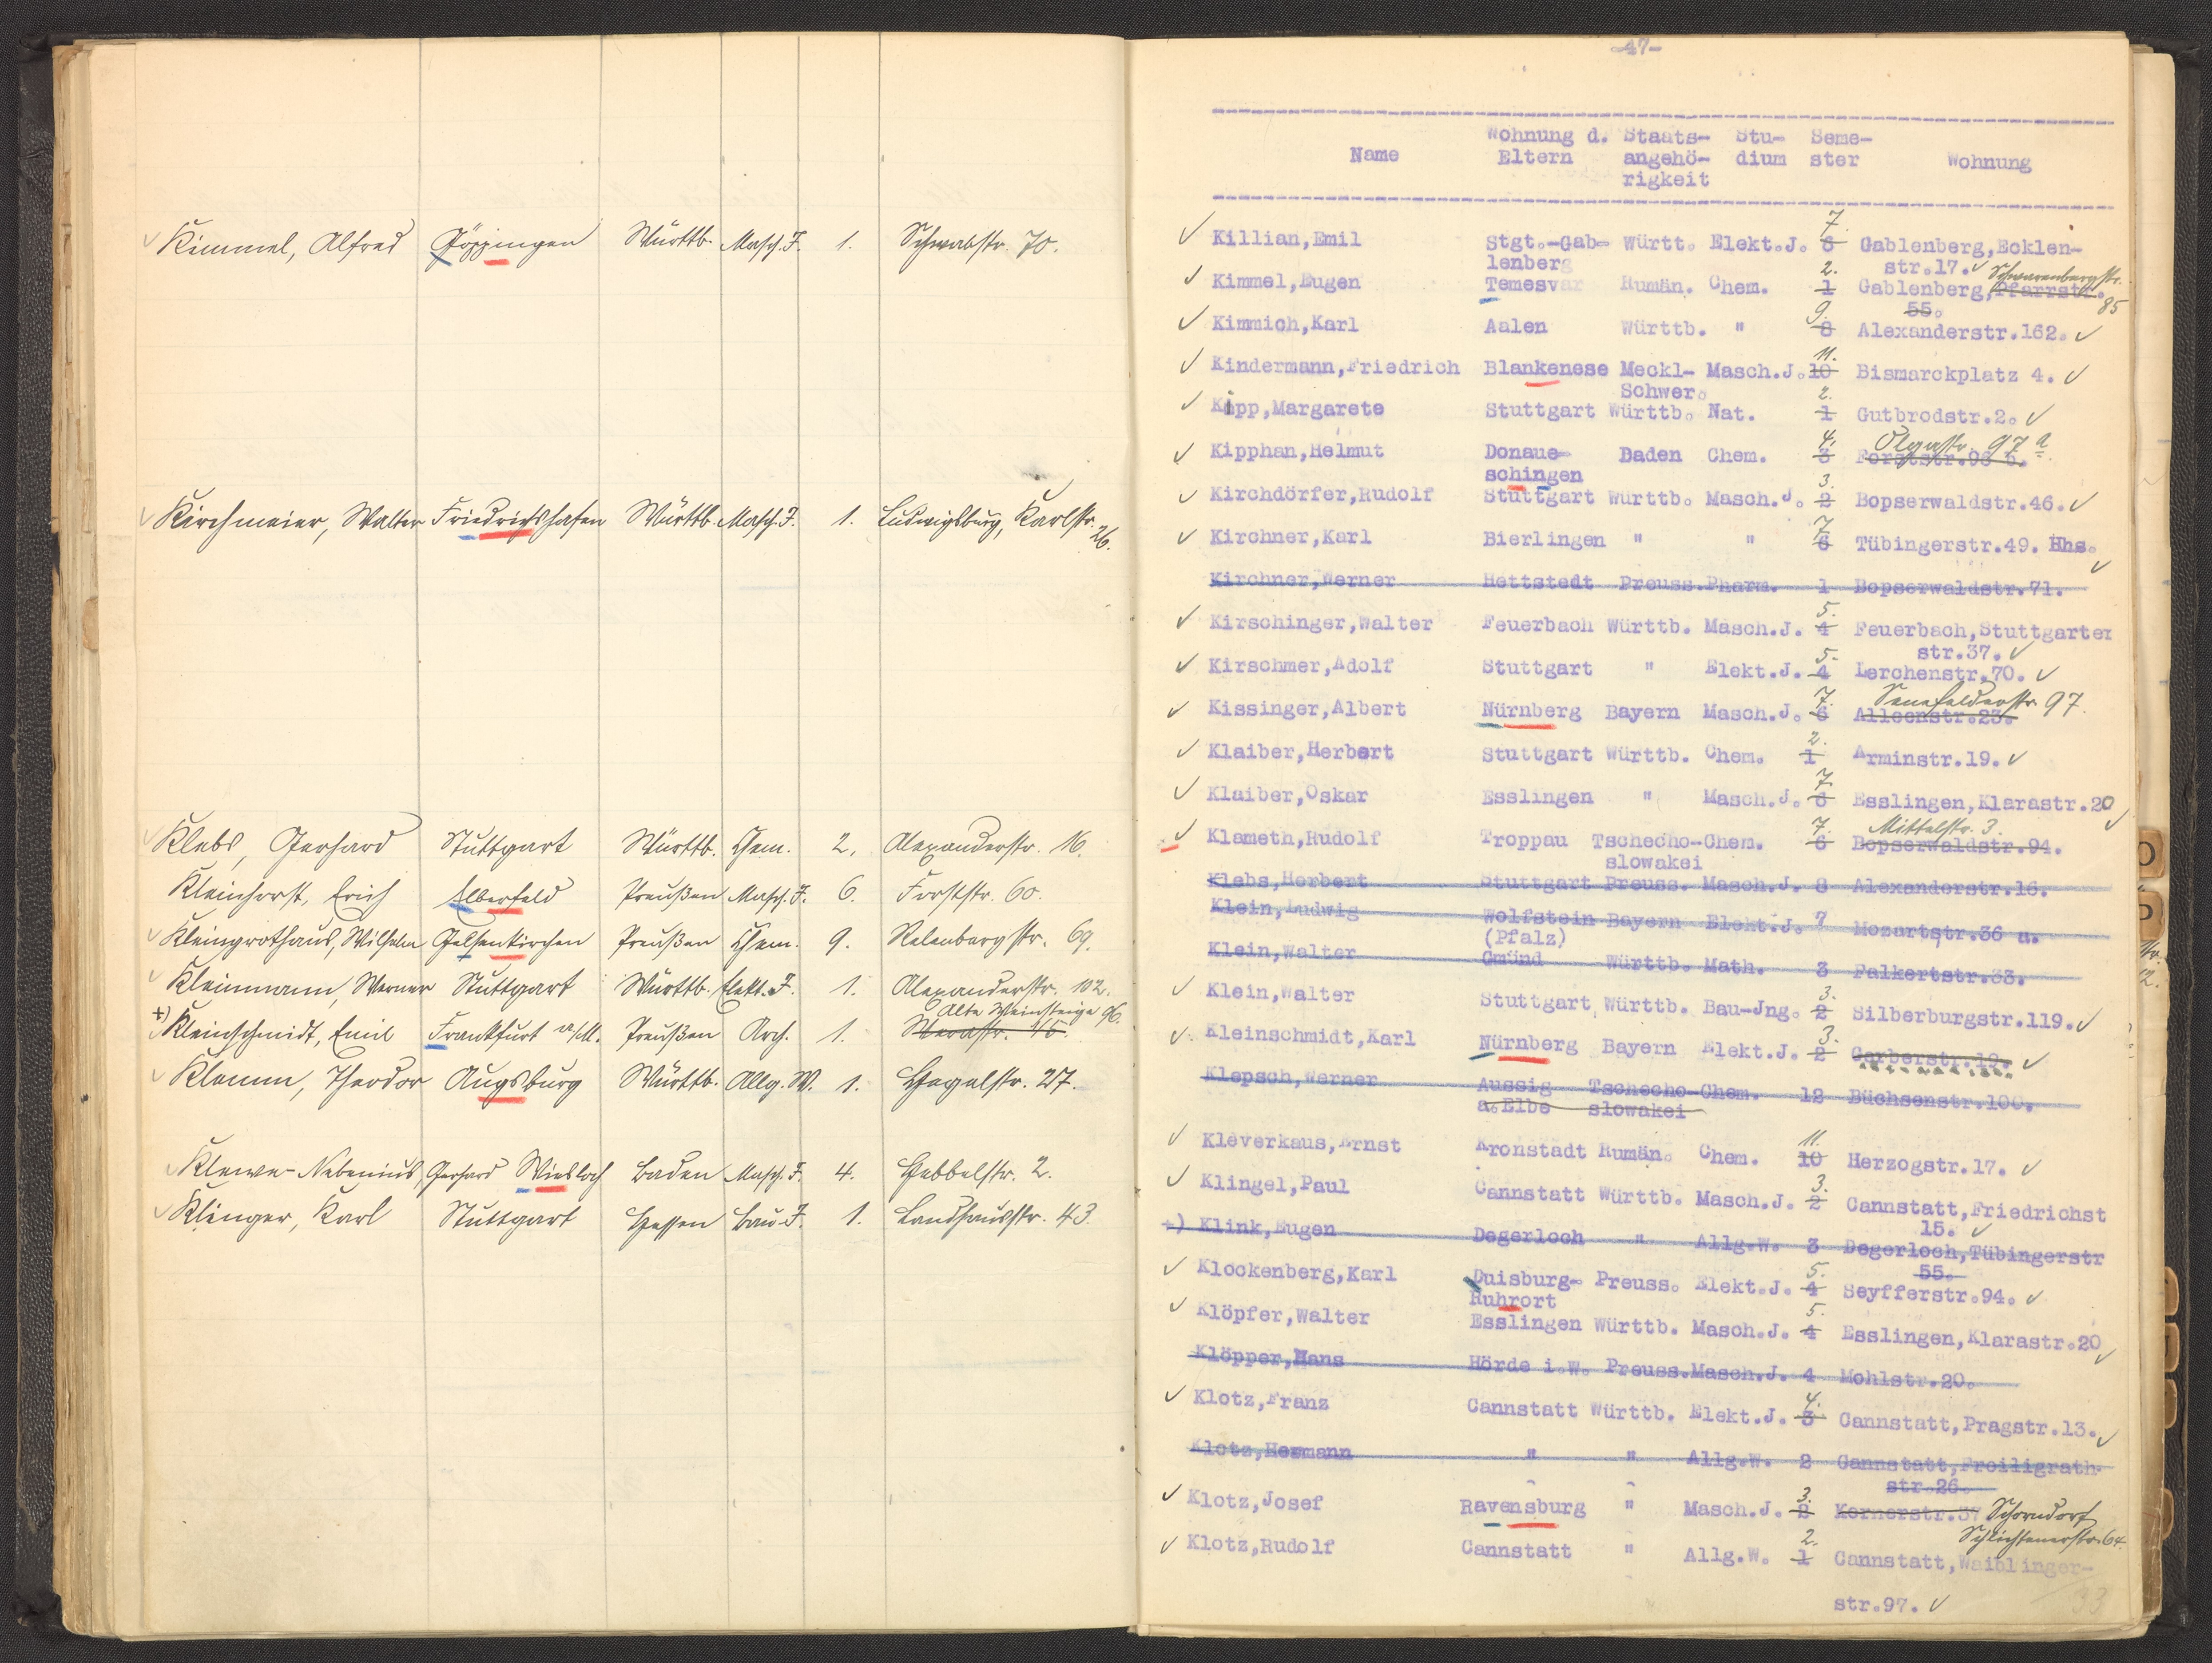 Kimmel, Alfred Göppingen Württb. Masch.J. 1. Schwabstr. 70.
Kirchmeier, Walter Friedrichshafen Württb. Masch.J. 1. Ludwigsburg, Karlstr.
26.
Klebs, Gerhard Stuttgart Württb. Chem. 2. Alexanderstr. 16.
Kleinhorst, Erich Elberfeld Preußen Masch.J. 6. Forststr. 60.
Kleingrothaus, Wilhelm Gelsenkirchen Preußen Chem. 9. Relenbergstr. 69.
Kleinmann, Werner Stuttgart Württb. Elekt.J. 1. Alexanderstr. 102.
Alte Weinsteige 96.
+) Kleinschmidt, Emil Frankfurt a/M. Preußen Arch. 1.
Klemm, Theodor Augsburg Württb. Allg.W. 1. Hegelstr. 27.
Klewe-Nebenius, Gerhard Wiesloch Baden Masch.J. 4. Hebbelstr. 2.
Klinger, Karl Stuttgart Hessen Bau-J. 1. Landhausstr. 43.
-47-
Name Wohnung d. Eltern Staats-angehö-rigkeit Stu-dium Seme-ster Wohnung
7.
Killian,Emil Stgt.-Gab- Württ. Elekt.J. 6 Gablenberg,Ecklen-
lenberg str.17.
2. Schwarenbergstr.
Kimmel,Eugen Temesvar Rumän. Chem. 1 Gablenberg,Pfarrstr.
55. 85
9.
Kimmich,Karl Aalen Württb. " 8 Alexanderstr.162.
11.
Kindermann,Friedrich Blankenese Meckl- Masch.J. 10 Bismarckplatz 4.
Schwer.
2.
Kipp,Margarete Stuttgart Württb. Nat. 1 Gutbrodstr.2.
4. Olgastr. 97 a
Kipphan,Helmut Donaue- Baden Chem. 3 Forststr.96 b.
schingen
3.
Kirchdörfer,Rudolf Stuttgart Württb. Masch.J. 2 Bopserwaldstr.46.
7
Kirchner,Karl Bierlingen " " 6 Tübingerstr.49. Hhs.
Kirchner,Werner Hettstedt Preuss.Pharm. 1 Bopserwaldstr.71.
5.
Kirschinger,Walter Feuerbach Württb. Masch.J. 4 Feuerbach,Stuttgarter
str.37.
5.
Kirschmer,Adolf Stuttgart " Elekt.J. 4 Lerchenstr.70.
7. Senefelderstr. 97.
Kissinger,Albert Nürnberg Bayern Masch.J. 6 Alleenstr.23.
2.
Klaiber,Herbert Stuttgart Württb. Chem. 1 Arminstr.19.
7.
Klaiber,Oskar Esslingen " Masch.J. 6 Esslingen,Klarastr.20
7. Mittelstr. 3.
Klameth,Rudolf Troppau Tschecho- Chem. 6 Bopserwaldstr.94.
slowakei
Klebs,Herbert Stuttgart Preuss. Masch.J. 8 Alexanderstr.16.
Klein,Ludwig Wolfstein Bayern Elekt.J. 7 Mozartstr.36 a.
(Pfalz)
Klein,Walter Gmünd Württb. Math. 3 Falkertstr.33.
3.
Klein,Walter Stuttgart Württb. Bau-Jng. 2 Silberburgstr.119.
3.
Kleinschmidt,Karl Nürnberg Bayern Elekt.J. 2 Gerberstr.19.
Klepsch,Werner Aussig Tschecho- Chem. 12 Büchsenstr.100.
a.Elbe slowakei
11.
Kleverkaus,Ernst Kronstadt Rumän. Chem. 10 Herzogstr.17.
3.
Klingel,Paul Cannstatt Württb. Masch.J. 2 Cannstatt,Friedrichst
15.
+) Klink,Eugen Degerloch " Allg.W. 3 Degerloch,Tübingerstr
55.
5.
Klockenberg,Karl Duisburg- Preuss. Elekt.J. 4 Seyfferstr.94.
Ruhrort
5.
Klöpfer,Walter Esslingen Württb. Masch.J. 4 Esslingen,Klarastr.20
Klöpper,Hans Hörde i.W. Preuss.Masch.J. 4 Mohlstr.20.
4.
Klotz,Franz Cannstatt Württb. Elekt.J. 3 Cannstatt,Pragstr.13.
Klotz,Hermann " " Allg.W. 2 Cannstatt,Freiligrath-
str.26.
3.
Klotz,Josef Ravensburg " Masch.J. 2 Kernerstr.37 Schorndorf
Schlichtenerstr.64.
2.
Klotz,Rudolf Cannstatt " Allg.W. 1 Cannstatt,Waiblinger-
str.97.
33